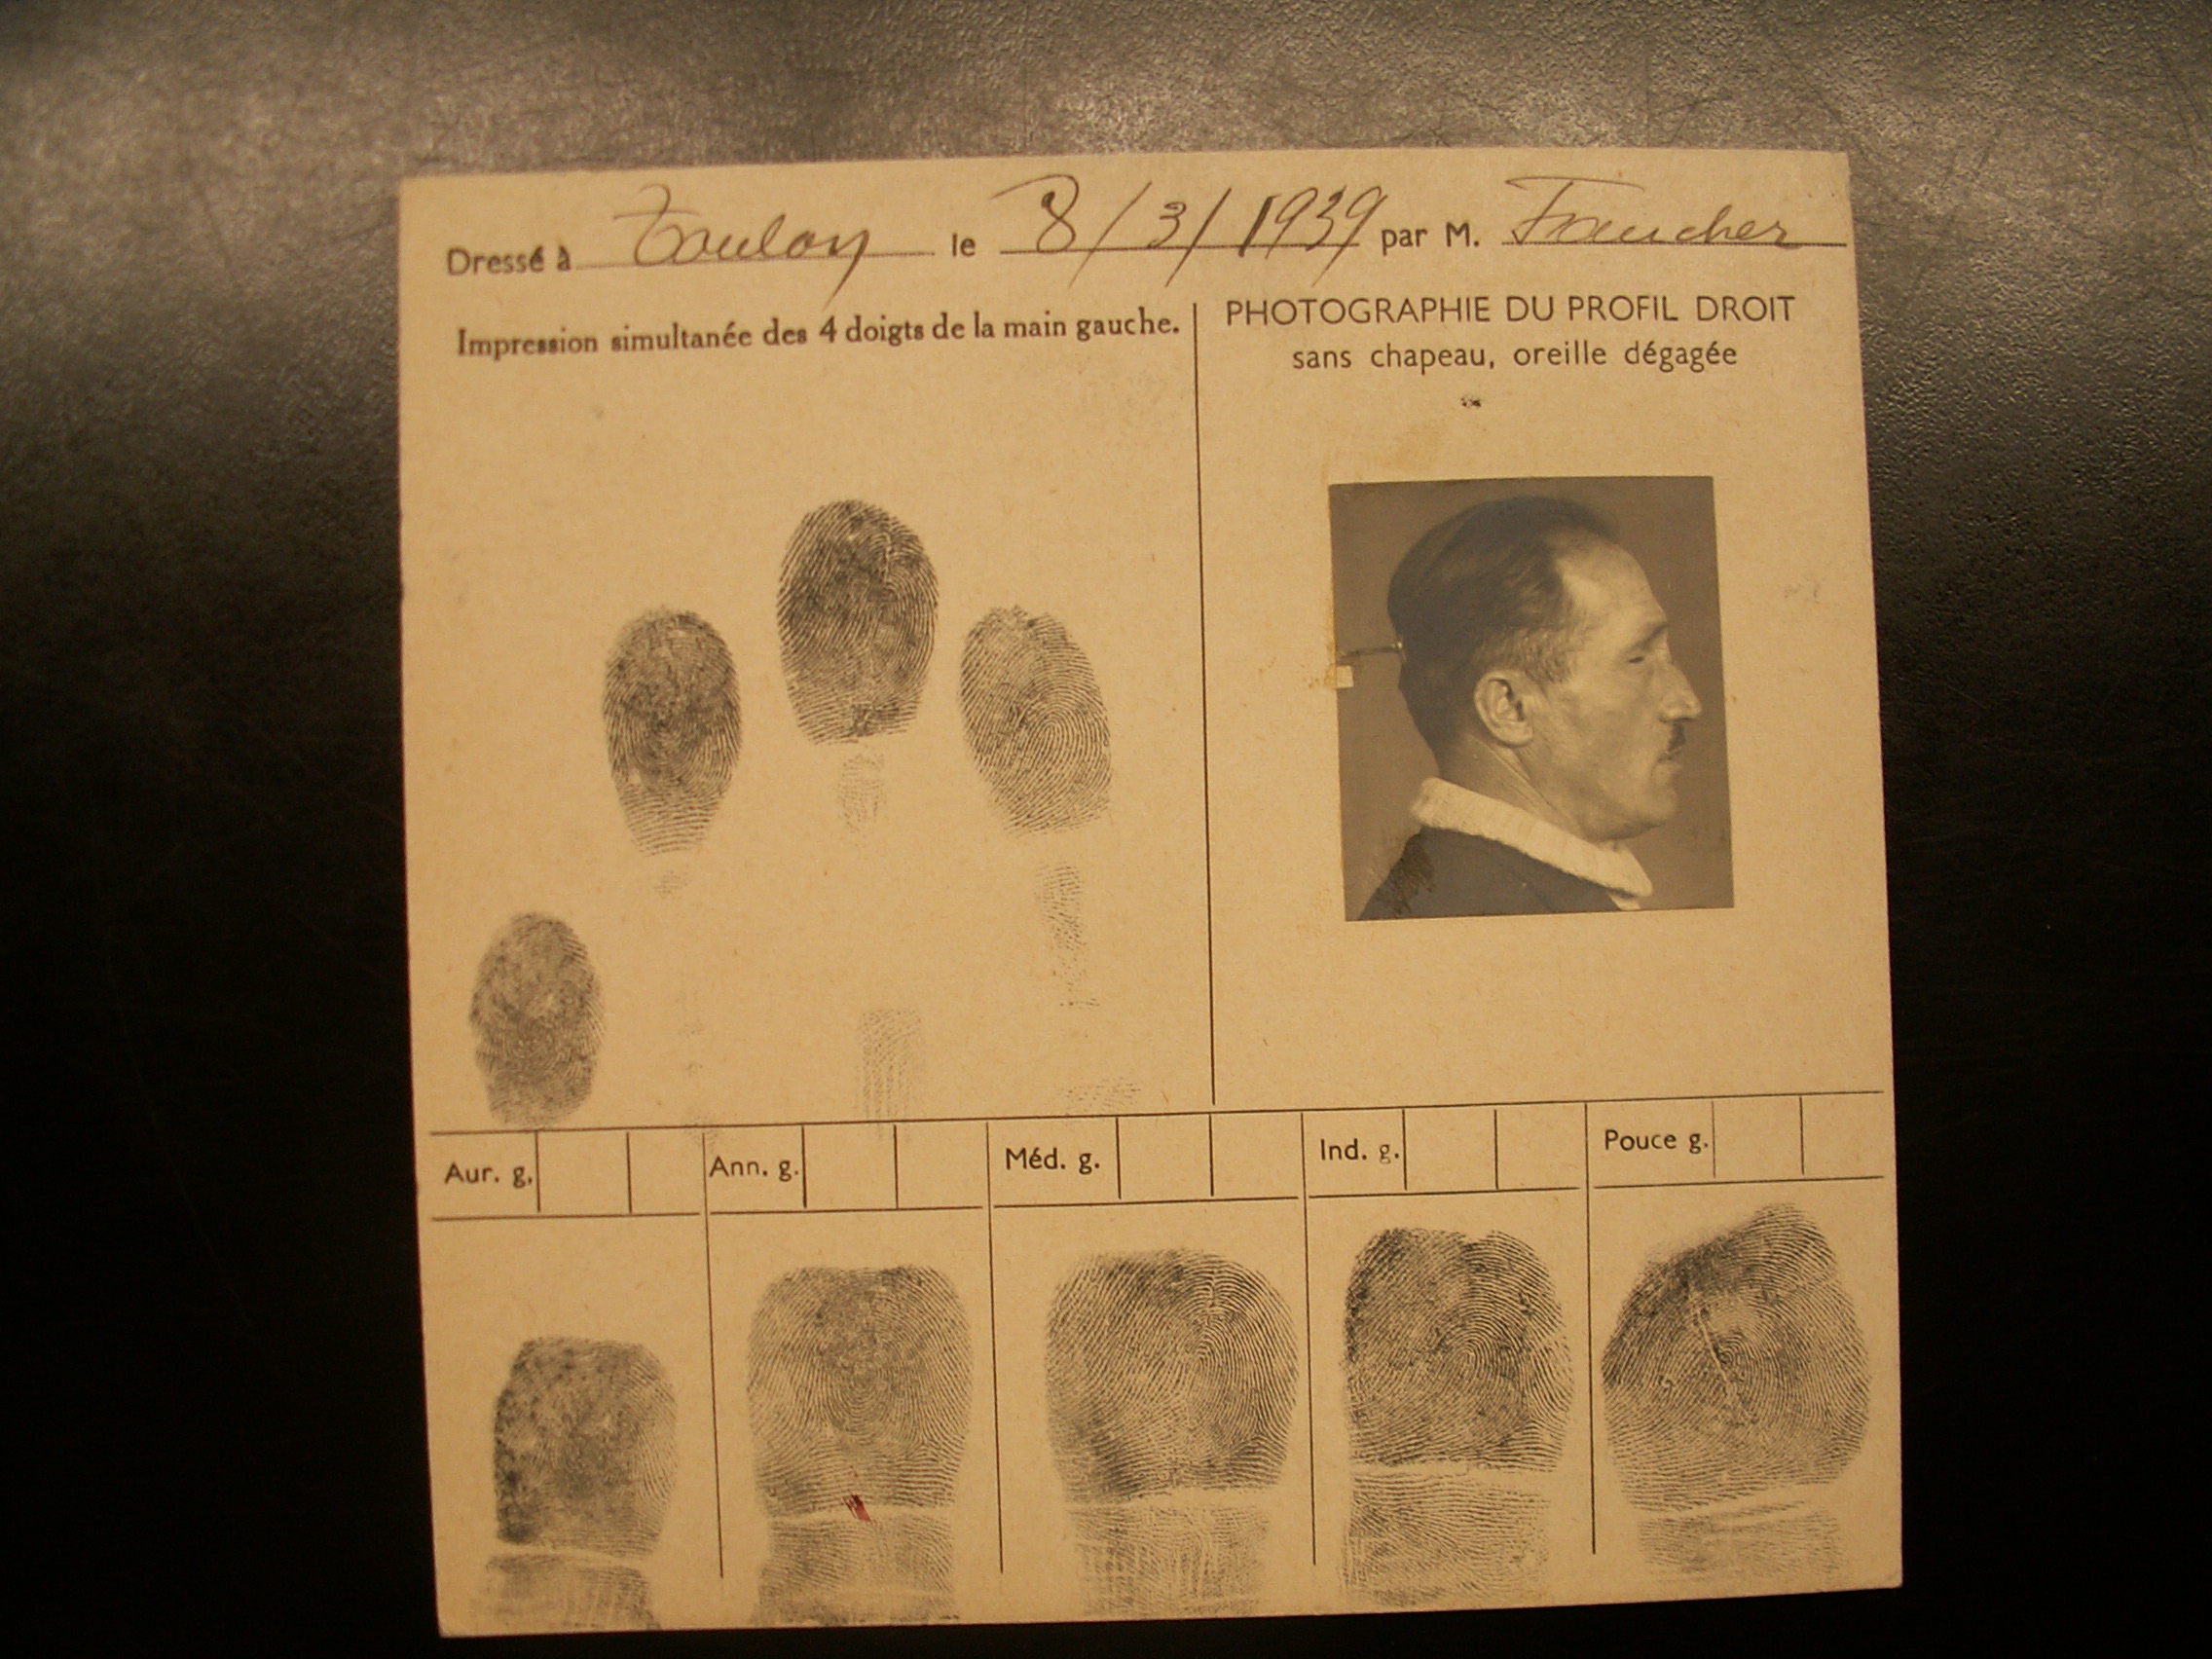 Dressé à Toulon le 8/3/1939 par M. Faucher
Impression simultanée des 4 doigts de la main gauche.
PHOTOGRAPHIE DU PROFIL DROIT
sans chapeau, oreille dégagée
Aur. g. Ann. g. Méd. g. Ind. g. Pouce g.